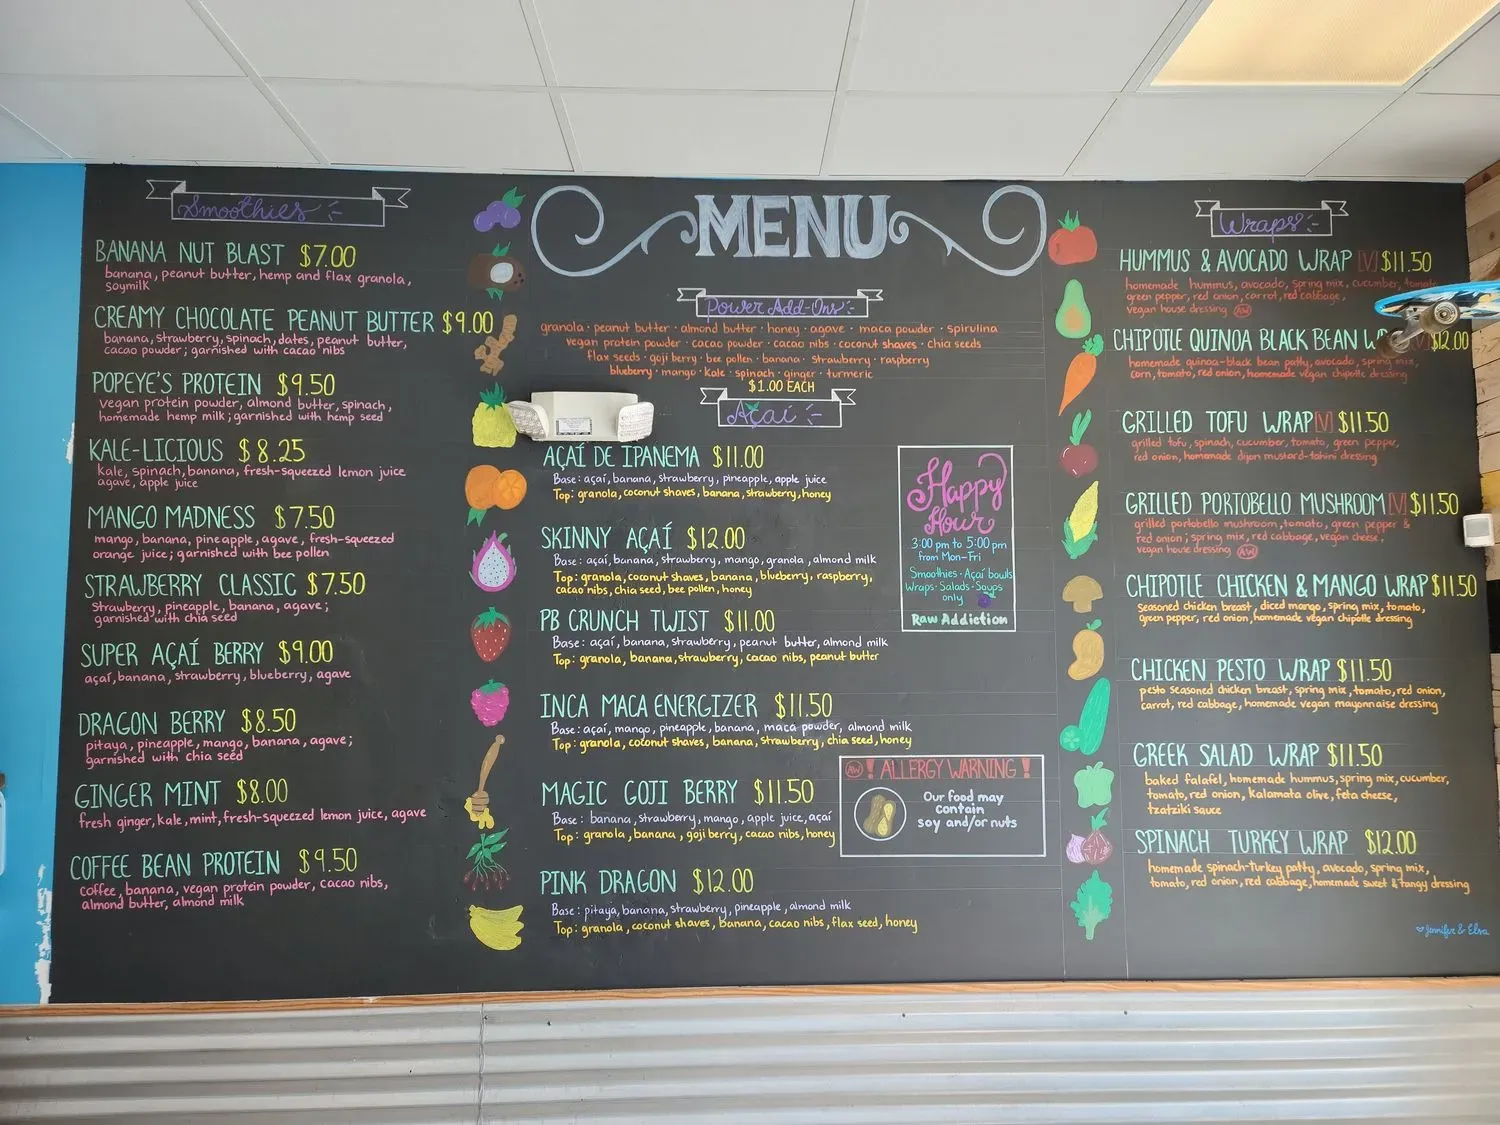 Smoothies
BANANA NUT BLAST $7.00
banana, peanut butter, hemp and flax granola,
soymilk
CREAMY CHOCOLATE PEANUT BUTTER $9.00
banana, strawberry, spinach, dates, peanut butter,
cacao powder; garnished with cacao nibs
POPEYE'S PROTEIN $9.50
vegan protein powder, almond butter, spinach,
homemade hemp milk; garnished with hemp seed
KALE-LICIOUS $8.25
kale, spinach, banana, fresh-squeezed lemon juice
agave, apple juice
MANGO MADNESS $7.50
mango, banana, pineapple, agave, fresh-squeezed
orange juice; garnished with bee pollen
STRAWBERRY CLASSIC $7.50
Strawberry, pineapple, banana, agave;
garnished with chia seed
SUPER AÇAÍ BERRY $9.00
açaí, banana, strawberry, blueberry, agave
DRAGON BERRY $8.50
pitaya, pineapple, mango, banana, agave;
garnished with chia seed
GINGER MINT $8.00
fresh ginger, kale, mint, fresh-squeezed lemon juice, agave
COFFEE BEAN PROTEIN $9.50
coffee, banana, vegan protein powder, cacao nibs,
almond butter, almond milk
MENU
Power Add-Ins
granola · peanut butter · almond butter · honey · agave · maca powder · spirulina
vegan protein powder · cacao powder · cacao nibs · coconut shaves · chia seeds
flax seeds · goji berry · bee pollen · banana · strawberry · raspberry
blueberry · mango · kale · spinach · ginger · turmeric
$1.00 EACH
Açaí
AÇAÍ DE IPANEMA $11.00
Base: açaí, banana, strawberry, pineapple, apple juice
Top: granola, coconut shaves, banana, strawberry, honey
SKINNY AÇAÍ $12.00
Base: açaí, banana, strawberry, mango, granola, almond milk
Top: granola, coconut shaves, banana, blueberry, raspberry,
cacao nibs, chia seed, bee pollen, honey
PB CRUNCH TWIST $11.00
Base: açaí, banana, strawberry, peanut butter, almond milk
Top: granola, banana, strawberry, cacao nibs, peanut butter
INCA MACA ENERGIZER $11.50
Base: açaí, mango, pineapple, banana, maca powder, almond milk
Top: granola, coconut shaves, banana, strawberry, chia seed, honey
MAGIC GOJI BERRY $11.50
Base: banana, strawberry, mango, apple juice, açaí
Top: granola, banana, goji berry, cacao nibs, honey
PINK DRAGON $12.00
Base: pitaya, banana, strawberry, pineapple, almond milk
Top: granola, coconut shaves, banana, cacao nibs, flax seed, honey
Happy
Hour
3:00 pm to 5:00 pm
from Mon-Fri
Smoothies · Açaí bowls
Wraps · Salads · Soups
only
Raw Addiction
AW ! ALLERGY WARNING !
Our food may
contain
soy and/or nuts
Wraps
HUMMUS & AVOCADO WRAP [V] $11.50
homemade hummus, avocado, spring mix, cucumber,
green pepper, red onion, carrot, red cabbage,
vegan house dressing AW
CHIPOTLE QUINOA BLACK BEAN $12.00
homemade quinoa-black bean patty, avocado, spring mix,
corn, tomato, red onion, homemade vegan chipotle dressing
GRILLED TOFU WRAP [V] $11.50
grilled tofu, spinach, cucumber, tomato, green pepper,
red onion, homemade dijon mustard-tahini dressing
GRILLED PORTOBELLO MUSHROOM [V] $11.50
grilled portobello mushroom, tomato, green pepper &
red onion; spring mix, red cabbage, vegan cheese,
vegan house dressing AW
CHIPOTLE CHICKEN & MANGO WRAP $11.50
seasoned chicken breast, diced mango, spring mix, tomato,
green pepper, red onion, homemade vegan chipotle dressing
CHICKEN PESTO WRAP $11.50
pesto seasoned chicken breast, spring mix, tomato, red onion,
carrot, red cabbage, homemade vegan mayonnaise dressing
GREEK SALAD WRAP $11.50
baked falafel, homemade hummus, spring mix, cucumber,
tomato, red onion, kalamata olive, feta cheese,
tzatziki sauce
SPINACH TURKEY WRAP $12.00
homemade spinach-turkey patty, avocado, spring mix,
tomato, red onion, red cabbage, homemade sweet & tangy dressing
Jennifer & Elva